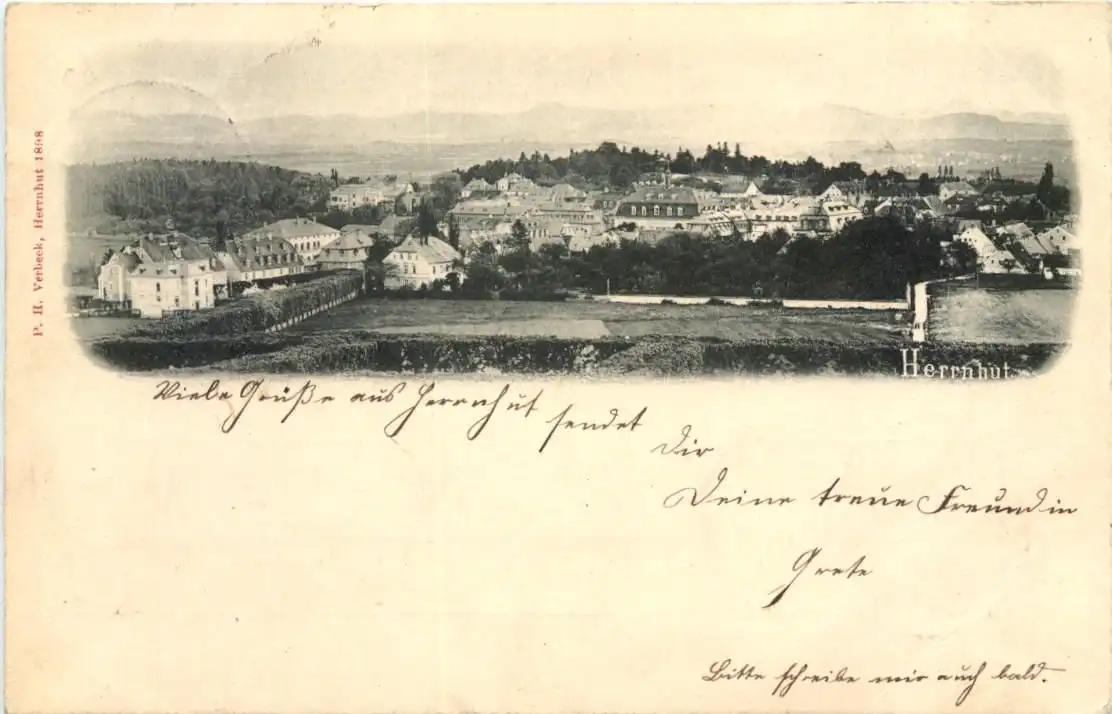 P. H. Verbeek, Herrnhut 1898
Herrnhut
Viele Grüße aus Herrnhut sendet
Dir
Deine treue Freundin
Grete
Bitte schreibe mir auch bald.